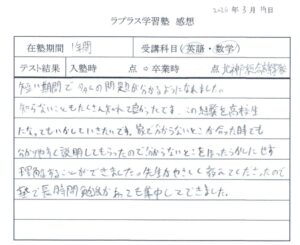 2020年3月19日
ラプラス学習塾 感想
在塾期間 1年間 受講科目 (英語・数学)
テスト結果 入塾時 点⇒卒業時 点
短い期間で多くの問題が分かるようになれました。
知らないこともたくさん知れて良かったです。この経験を高校生
になってもいかしていきたいです。家で分からないとこが合った時でも
分かりやすく説明してもらったので分からないとこをほったらかしにせず
理解することができました。先生もやさしく教えてくださったので
塾で長時間勉強があっても集中してできました。